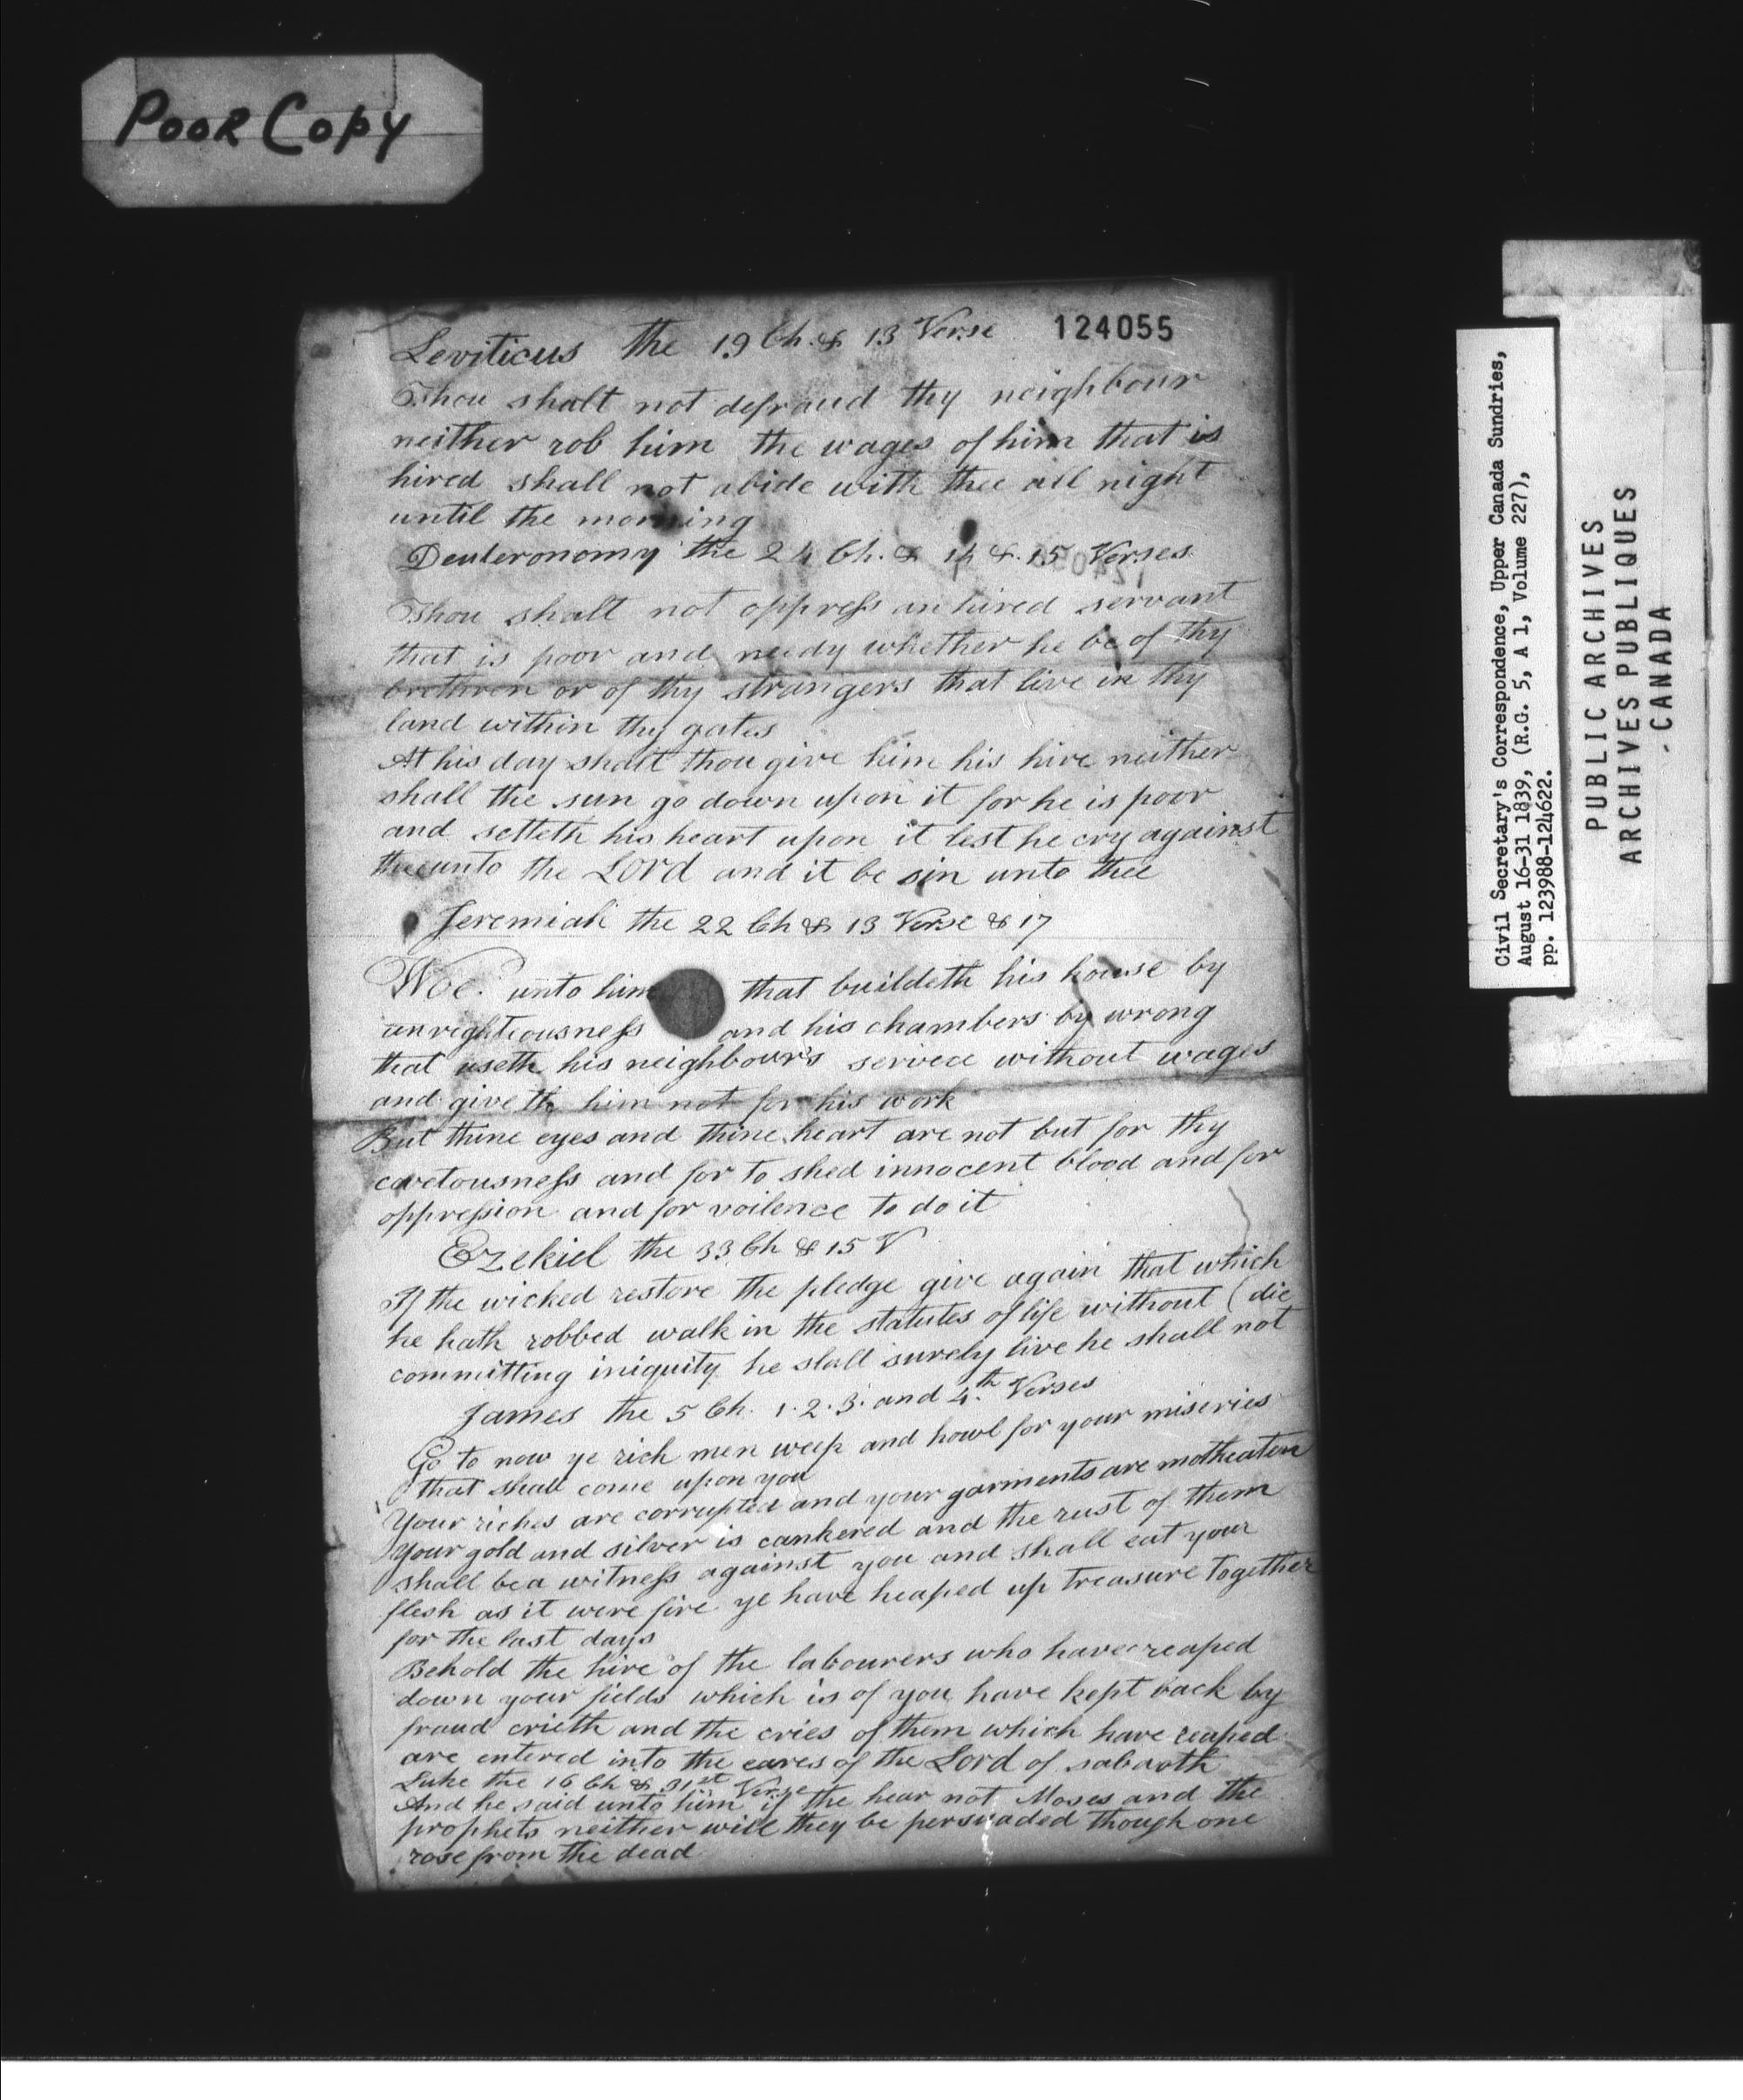 Poor Copy
124055
Leviticus the 19 Ch. & 13 Verse
Thou shalt not defraud thy neighbour
neither rob him the wages of him that is
hired shall not abide with thee all night
until the morning
Deuteronomy the 24 Ch. & 14 & 15 Verses
Thou shalt not oppress an hired servant
that is poor and needy whether he be of thy
brethren or of thy strangers that live in thy
land within thy gates
At his day shalt thou give him his hire neither
shall the sun go down upon it for he is poor
and setteth his heart upon it lest he cry against
thee unto the Lord and it be sin unto thee
Jeremiah the 22 Ch & 13 Verse & 17
Woe unto him that buildeth his house by
unrighteousness and his chambers by wrong
that useth his neighbour's service without wages
and giveth him not for his work
But thine eyes and thine heart are not but for thy
covetousness and for to shed innocent blood and for
oppression and for voilence to do it
Ezekiel the 33 Ch & 15 V
If the wicked restore the pledge give again that which
he hath robbed walk in the statutes of life without (die
committing iniquity he shall surely live he shall not
James the 5 Ch. 1. 2. 3. and 4.th Verses
Go to now ye rich men weep and howl for your miseries
that shall come upon you
Your riches are corrupted and your garments are motheaten
Your gold and silver is cankered and the rust of them
shall be a witness against you and shall eat your
flesh as it were fire ye have heaped up treasure together
for the last days
Behold the hire of the labourers who have reaped
down your fields which is of you have kept back by
fraud crieth and the cries of them which have reaped
are entered into the eares of the Lord of sabaoth
Luke the 16 Ch & 31st Verse
And he said unto him if the hear not Moses and the
prophets neither will they be persuaded though one
rose from the dead
Civil Secretary's Correspondence, Upper Canada Sundries,
August 16-31 1839, (R.G. 5, A 1, Volume 227),
pp. 123988-124622.
PUBLIC ARCHIVES
ARCHIVES PUBLIQUES
CANADA